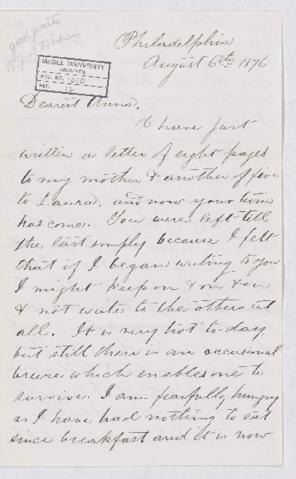 good points
Philadelphia
August 6th, 1876
McGILL UNIVERSITY
ARCHIVES
ACC. NO. 1010
REF.
Dearest Anna,
I have just
written a letter of eight pages
to my mother & another of five
to Laura, and now your turn
has come. You were left till
the last simply because I felt
that if I began writing to you
I might keep on & on & on
& not write to the others at
all. It is very hot to-day
but still there is an occasional
breeze which enables me to
survive. I am fearfully hungry
as I have had nothing to eat
since breakfast and it is now